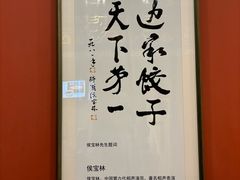 边家饺子
天下第一
一九八八年 侯宝林
侯宝林先生题词
侯宝林
侯宝林，中国第六代相声演员，著名相声表演